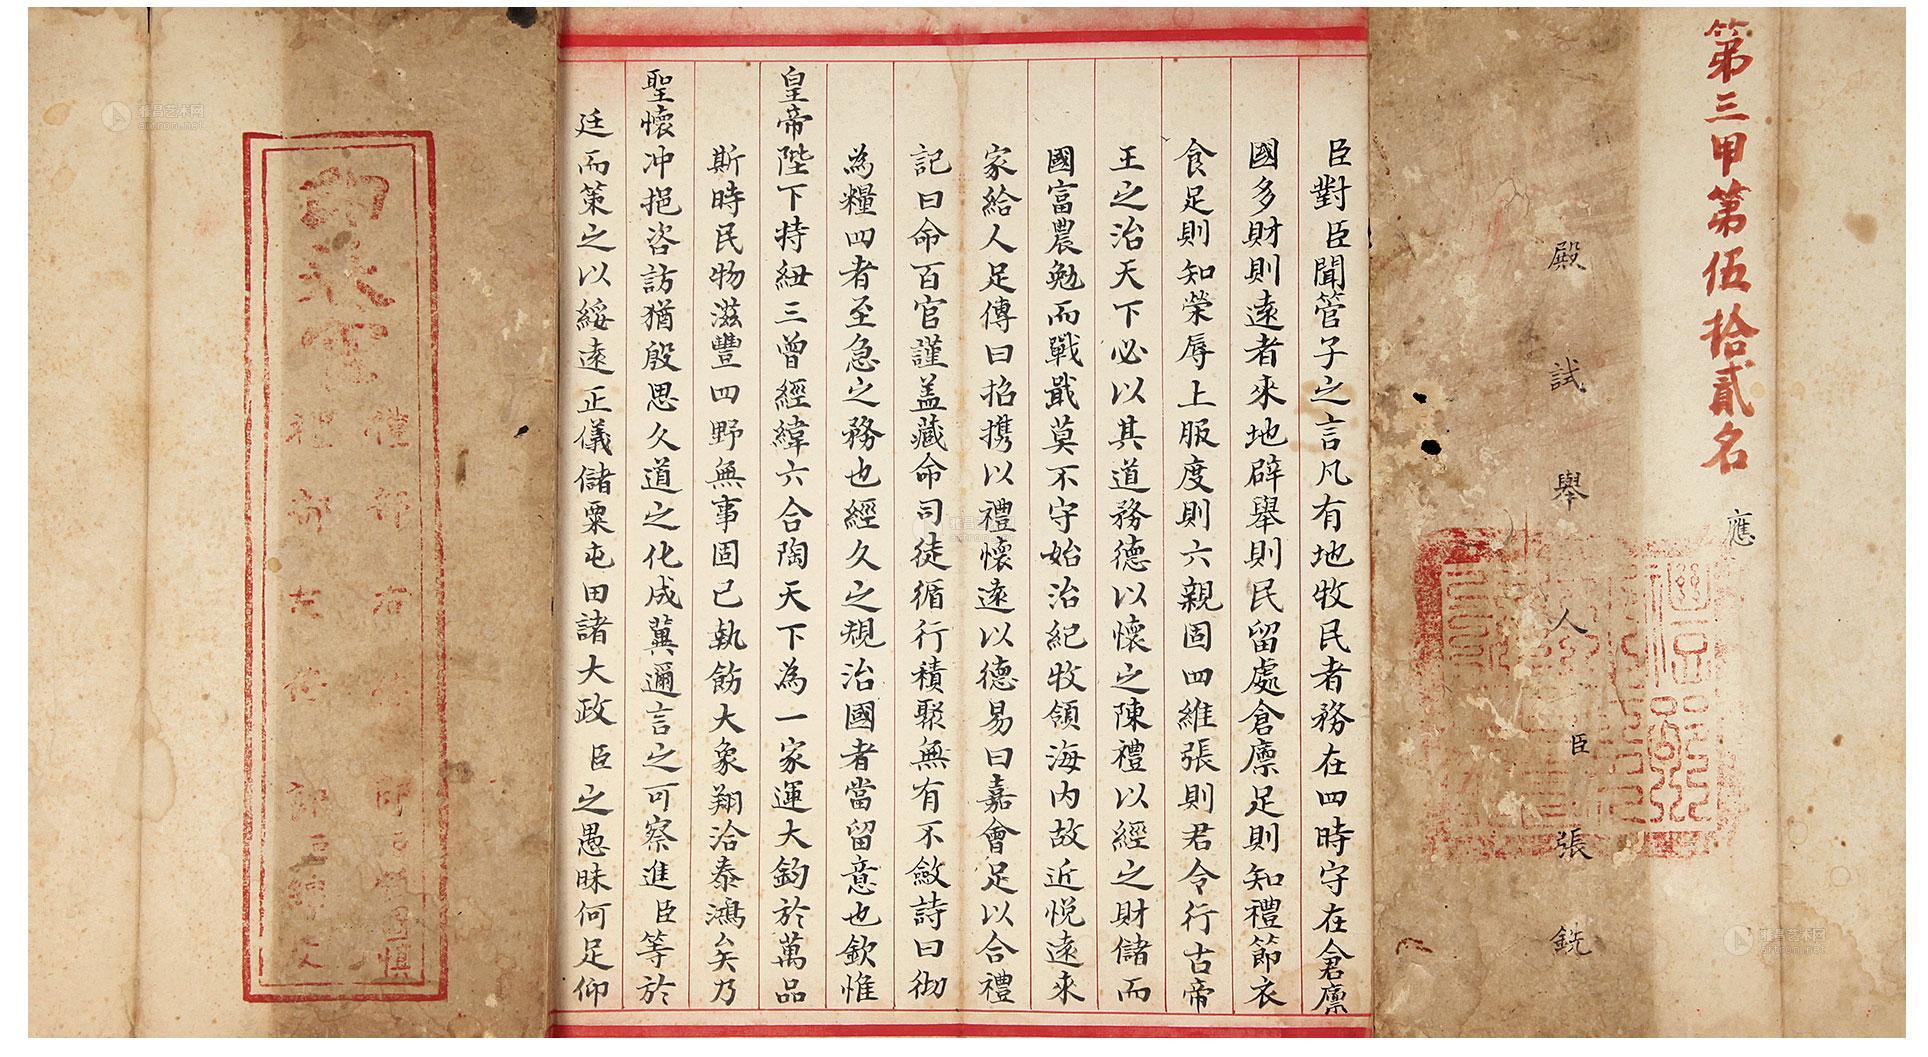 第三甲第伍拾貳名
應
殿試舉人臣張銑
臣對臣聞管子之言凡有地牧民者務在四時守在倉廩
國多財則遠者來地辟舉則民留處倉廩足則知禮節衣
食足則知榮辱上服度則六親固四維張則君令行古帝
王之治天下必以其道務德以懷之陳禮以經之財儲而
國富農勉而戰戢莫不守始治紀牧領海內故近悅遠來
家給人足傳曰招攜以禮懷遠以德易曰嘉會足以合禮
記曰命百官謹盖藏命司徒循行積聚無有不斂詩曰彻
為糧四者至急之務也經久之規治國者當留意也欽惟
皇帝陛下特紐三曾經緯六合陶天下為一家運大鈞於萬品
斯時民物滋豐四野無事固已執飭大象翔洽泰鴻矣乃
聖懷冲挹咨訪猶殷思久道之化成冀邇言之可察進臣等於
廷而策之以綏遠正儀儲粟屯田諸大政臣之愚昧何足仰
印卷官
禮部
禮部
雅昌艺术网
artron.net
雅昌艺术网
artron.net
雅昌艺术网
artron.net